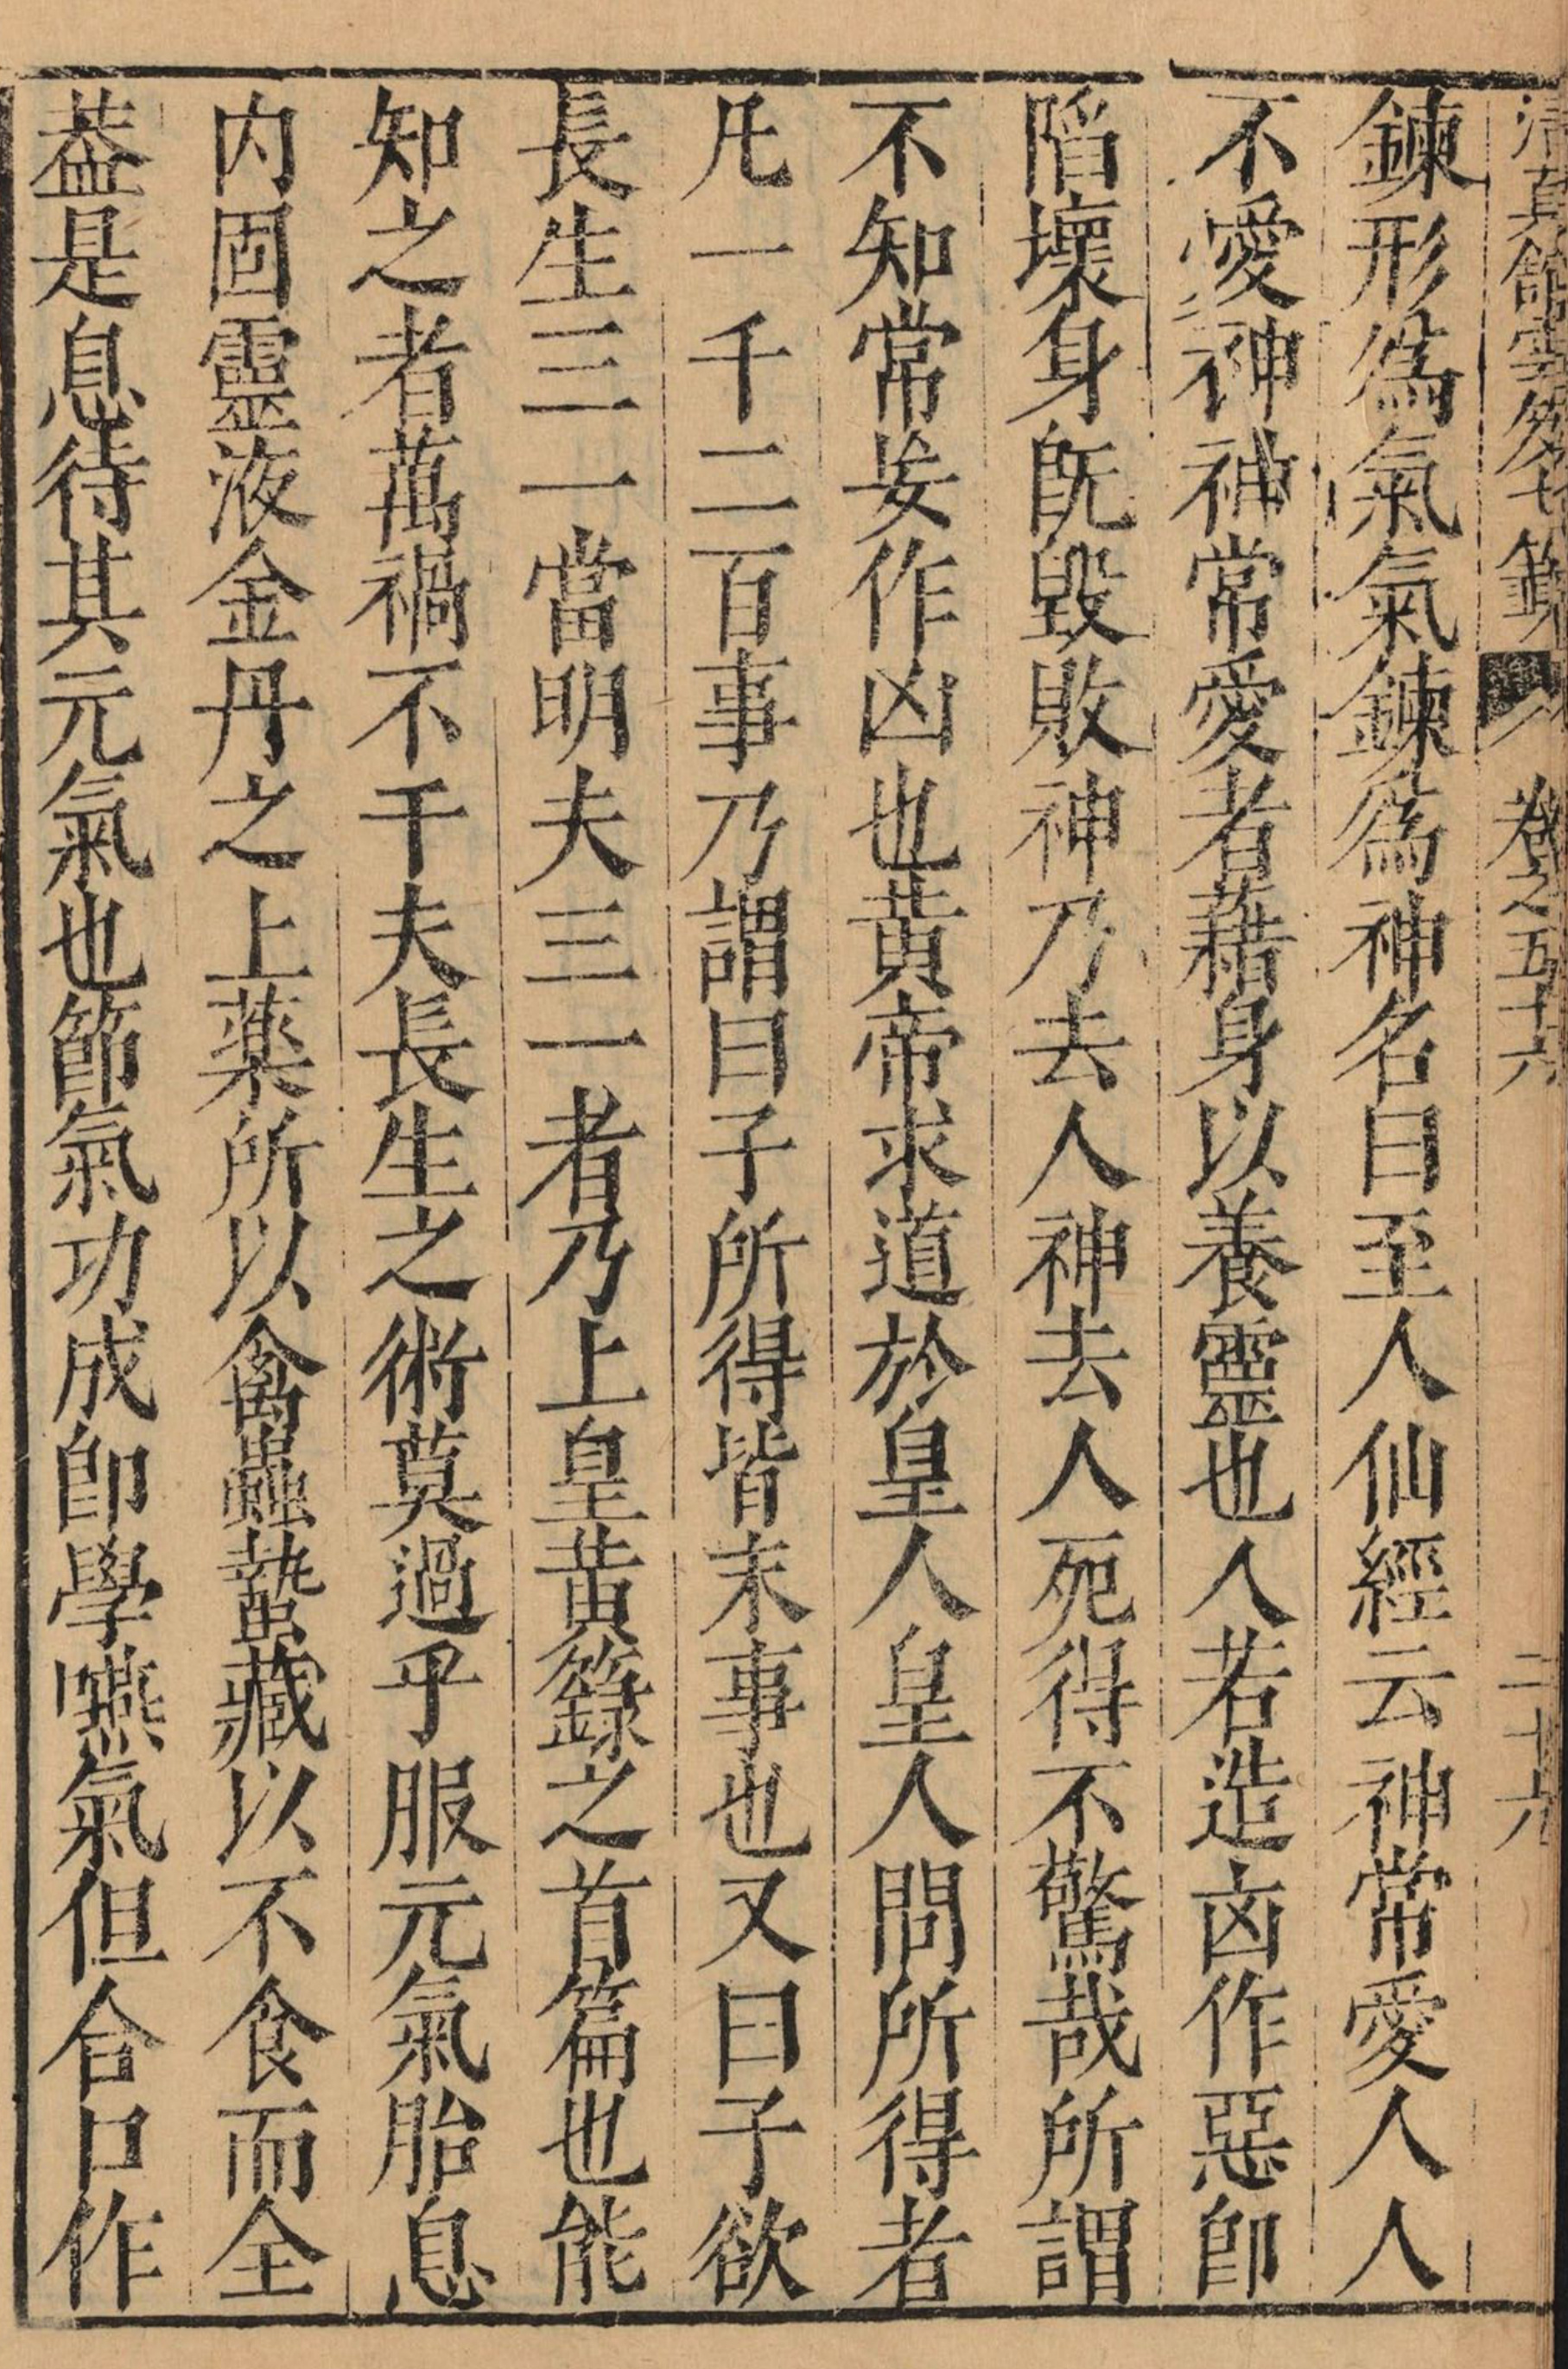 清真館雲笈七籤 卷之五十六 二十六
鍊形爲氣氣鍊爲神名曰至人仙經云神常愛人人
不愛神神常愛者藉身以養靈也人若造凶作惡即
陷壞身旣毀敗神乃去人神去人死得不驚哉所謂
不知常妄作凶也黃帝求道於皇人皇人問所得者
凡一千二百事乃謂曰子所得皆末事也又曰子欲
長生三一當明夫三一者乃上皇黃籙之首篇也能
知之者萬禍不干夫長生之術莫過乎服元氣胎息
內固靈液金丹之上藥所以禽蟲蟄藏以不食而全
葢是息待其元氣也節氣功成即學嚥氣但合口作